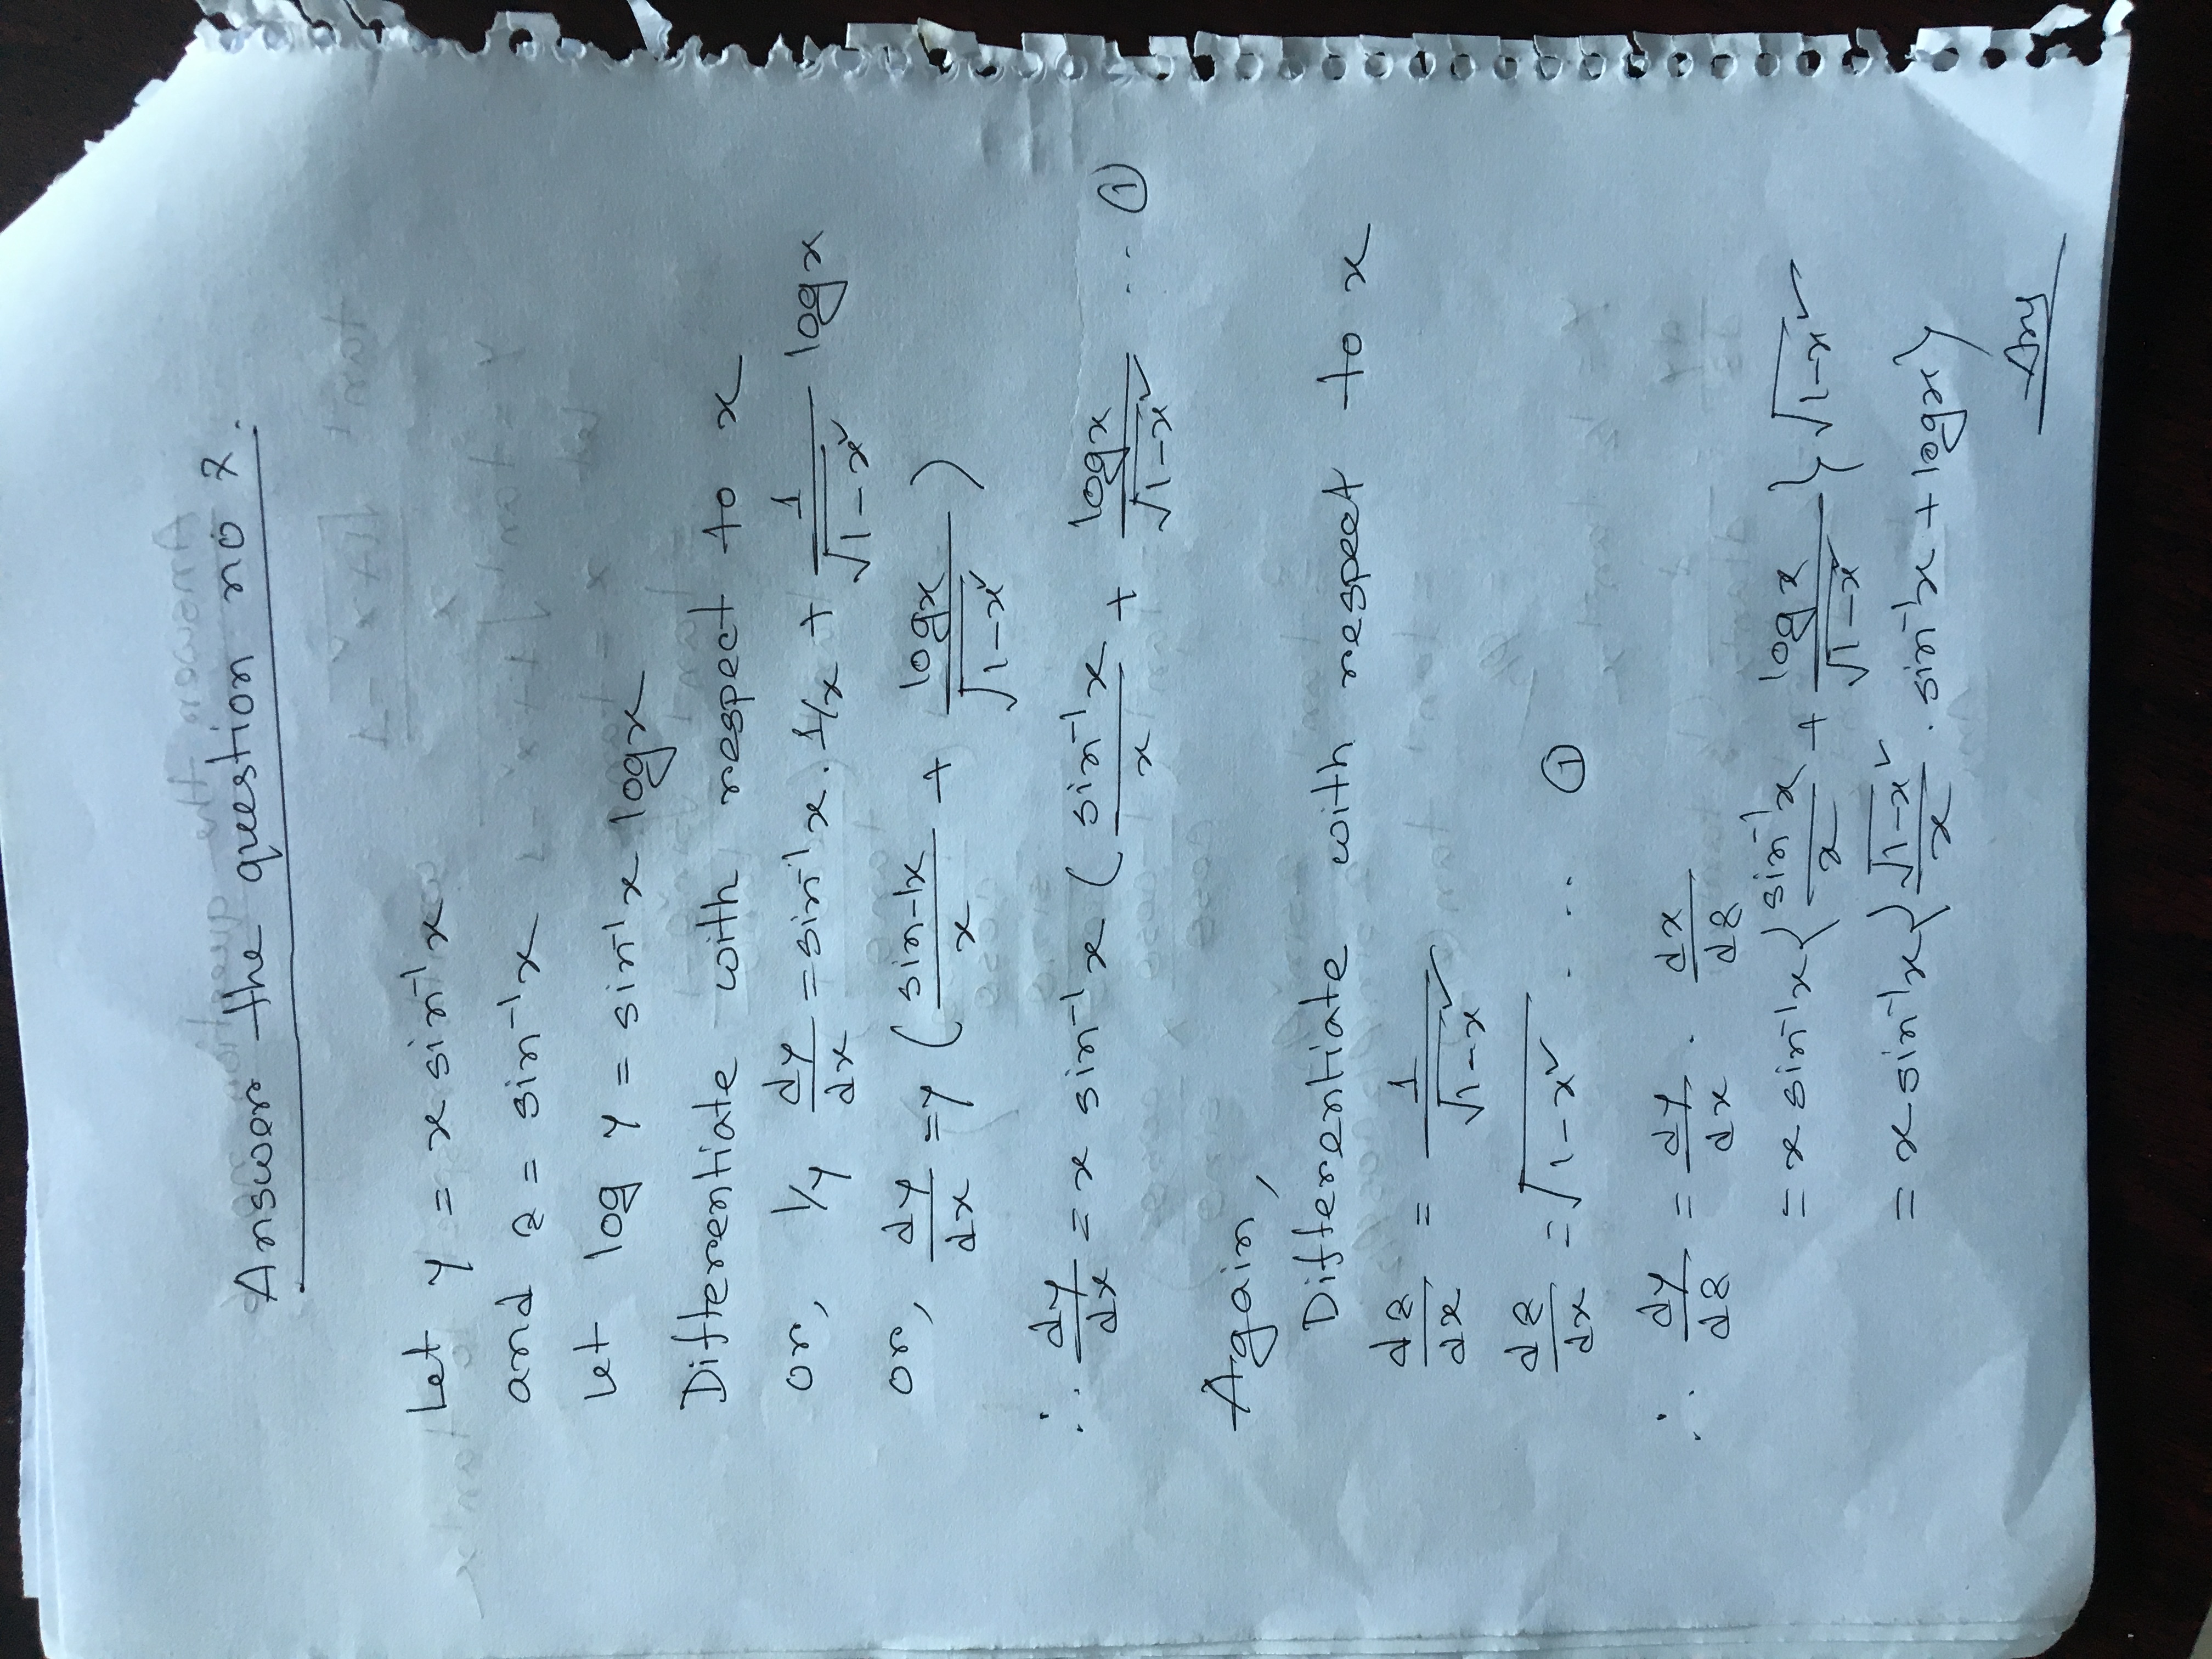 Answer the question no 7.
Let y = x sin⁻¹x
and z = sin⁻¹x
Let log y = sin⁻¹x logx
Differentiate with respect to x
or, 1/y dy/dx = sin⁻¹x . 1/x + 1/√1-x² logx
or, dy/dx = y ( sin-1x/x + logx/√1-x² )
∴ dy/dx = x sin⁻¹x ( sin⁻¹x/x + logx/√1-x² ... ①
Again,
Differentiate with respect to x
dz/dx = 1/√1-x²
dz/dx = √1-x² ... ①
∴ dy/dz = dy/dx . dx/dz
= x sin⁻¹x { sin⁻¹x/x + logx/√1-x² } √1-x²
= x sin⁻¹x { √1-x²/x . sin⁻¹x + logx }
Ans